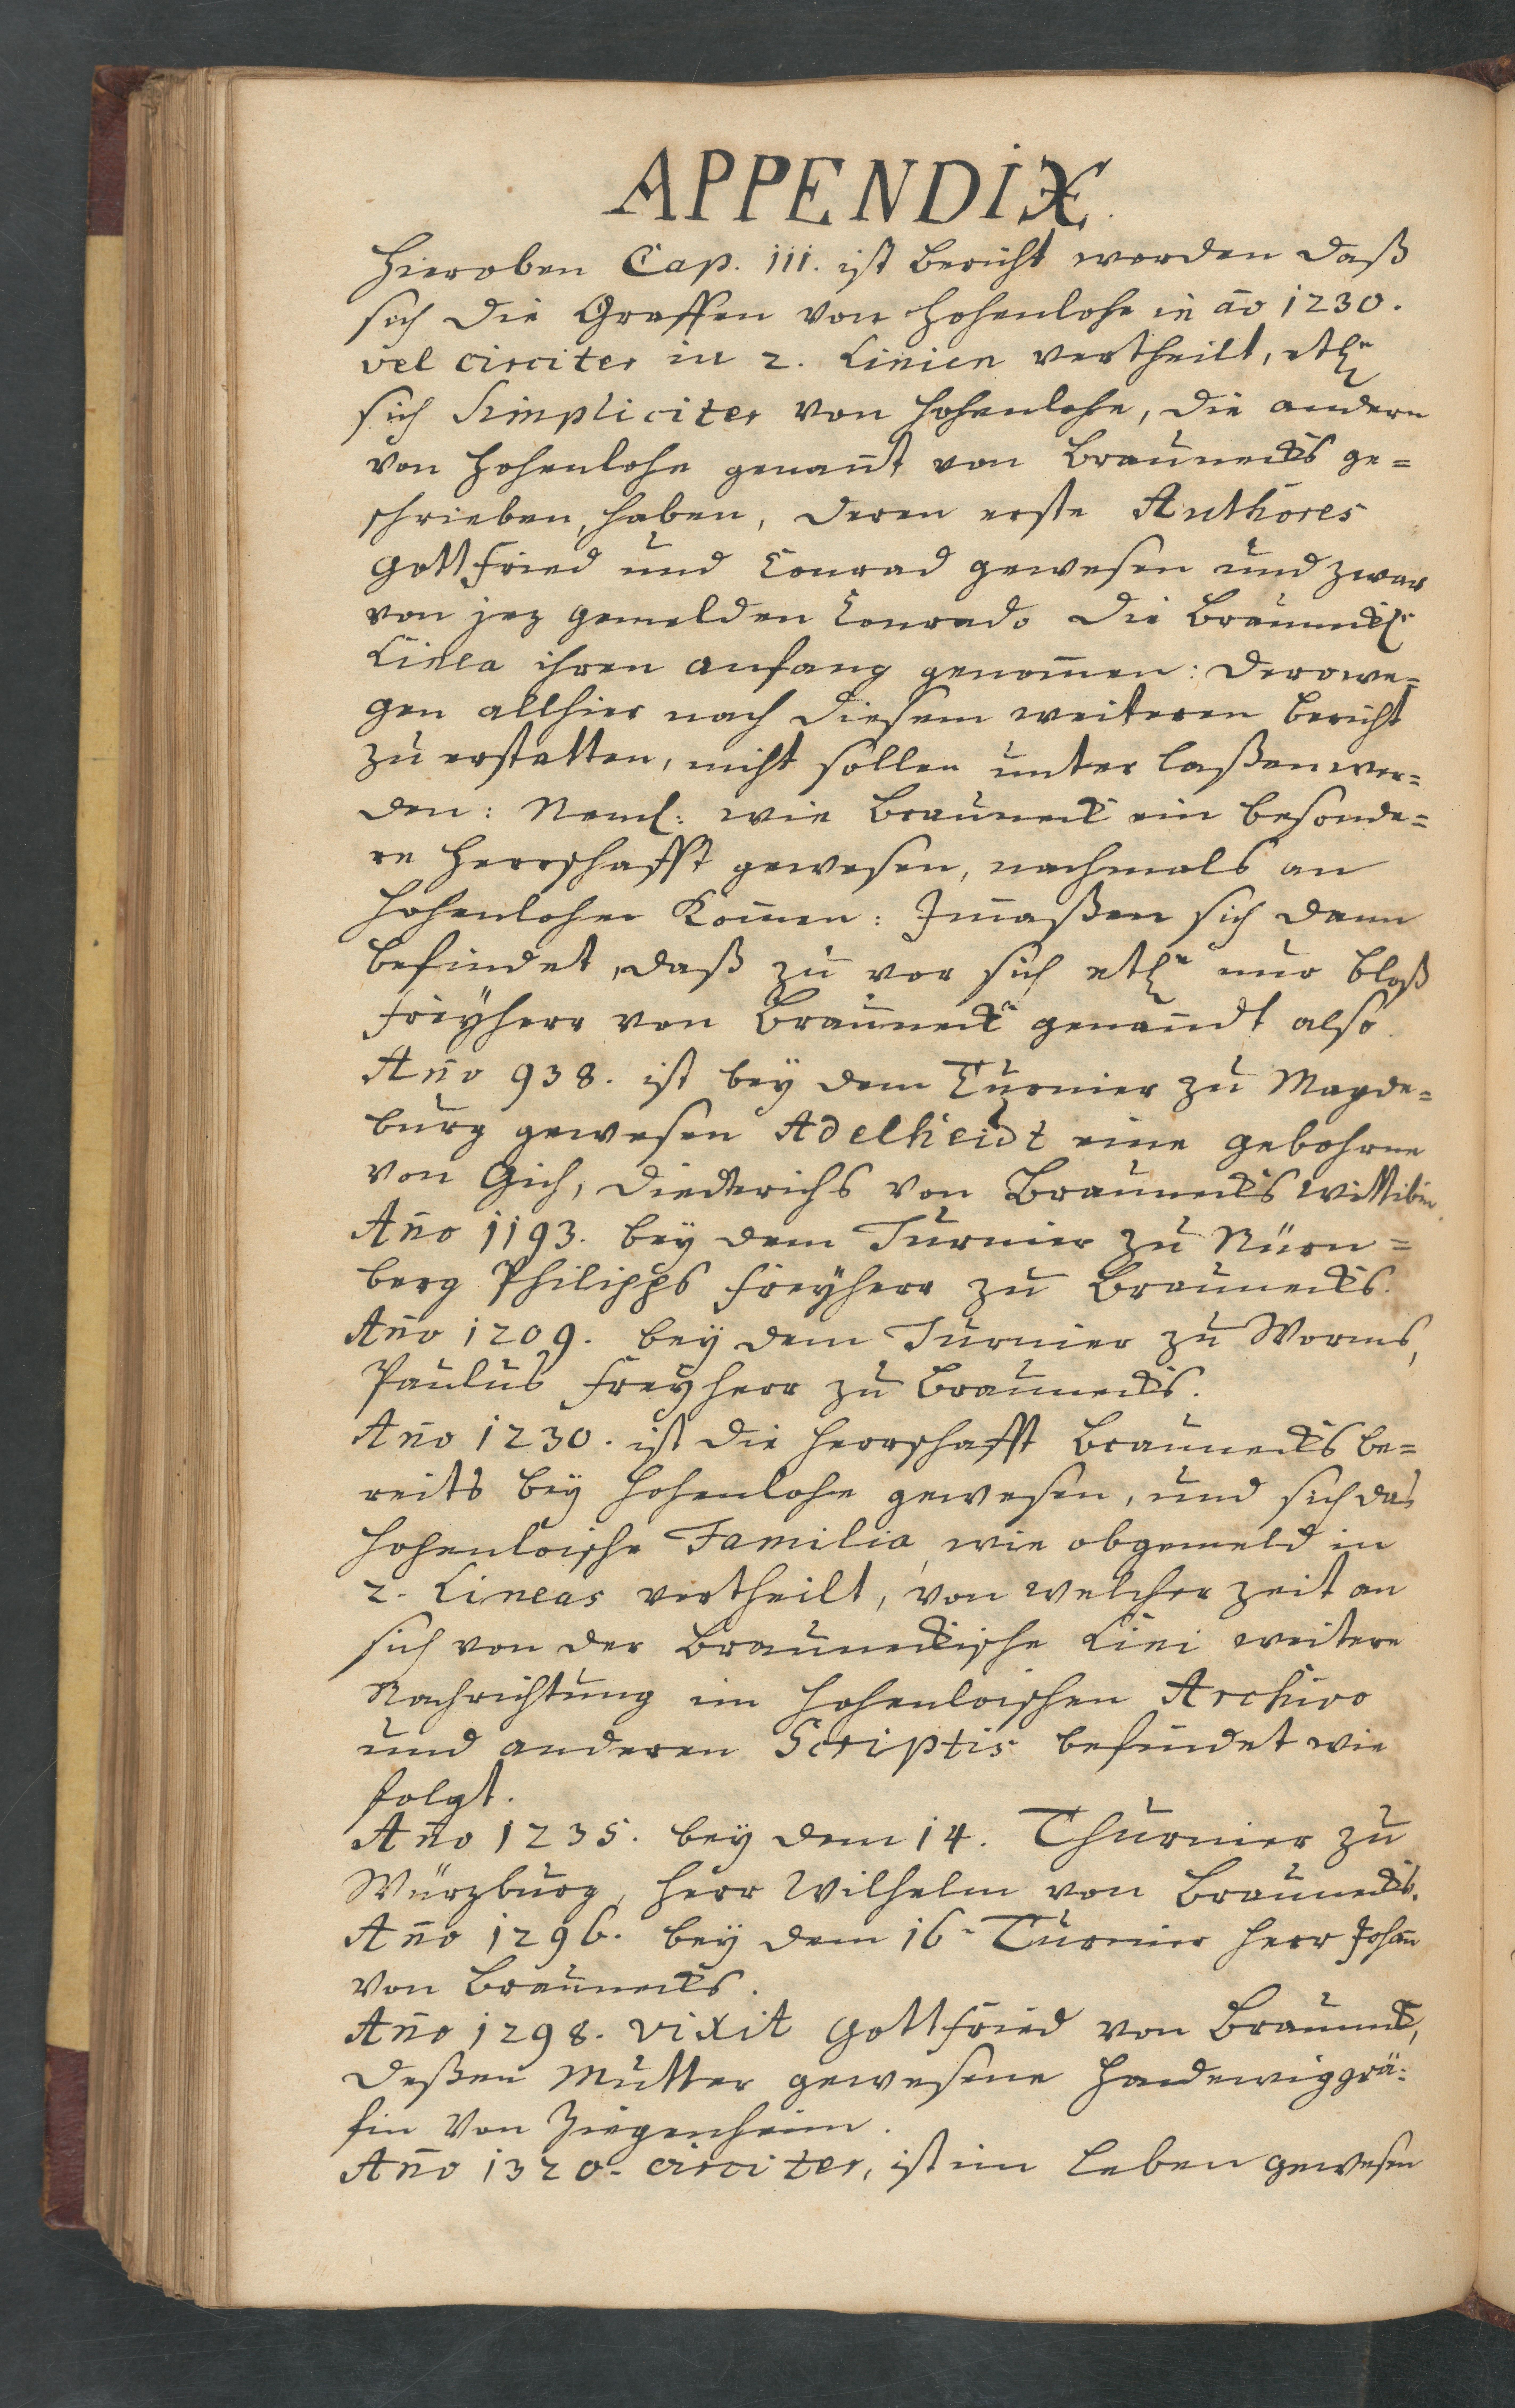 APPENDIX.
Hieroben Cap. III. ist bericht worden daß
sich die Graffen von Hohenlohe in ao 1230.
vel circiter in 2. Linien vertheilt, etl.
sich Simpliciter von Hohenlohe, die andern
von Hohenlohe genant von Braunecks ge=
schrieben, haben, deren erste Authores
Gottfried und Conrad gewesen und zwar
von jez gemelden Conrado die Brauneckl.
Linea ihren anfang genomen: derowe=
gen allhier nach diesem weiteren bericht
zu erstatten, nicht sollen unter laßen wer=
den: Neml: wie Brauneck ein besonde=
re Herrschafft gewesen, nachmals an
Hohenlohe Komen: Jmaßen sich dann
befindet, daß zu vor sich etl. nur bloß
Freyherr von Brauneck genandt also.
Ano 938. ist bey dem Turnier zu Magde=
burg gewesen Adelheidt eine gebohrne
von Gich, Diederichs von Braunecks Wittibin.
Ano 1193. bey dem Turnier zu Nürn=
berg Philipps Freyherr zu Braunecks.
Ano 1209. bey dem Turnier zu Worms,
Paulus Freyherr zu Braunecks.
Ano 1230. ist die Herrschafft Braunecks be=
reits bey Hohenlohe gewesen, und sich das
Hohenloische Familia, wie obgemeld in
2. Lineas vertheilt, von welcher zeit an
sich von der Brauneckische Lini weitere
Nachrichtung im Hohenloischen Archivo
und anderen Scriptis befindet wie
folgt.
Ano 1235. bey dem 14. Thurnier zu
Würzburg, Herr Wilhelm von Braunecks.
Ano 1296. bey dem 16. Turnier Herr Johan
von Braunecks.
Ano 1298. vixit Gottfried von Brauneck,
deßen Mutter gewesene Hadewig grä=
fin von Ziegenheim.
Ano 1320. circiter, ist im leben gewesen